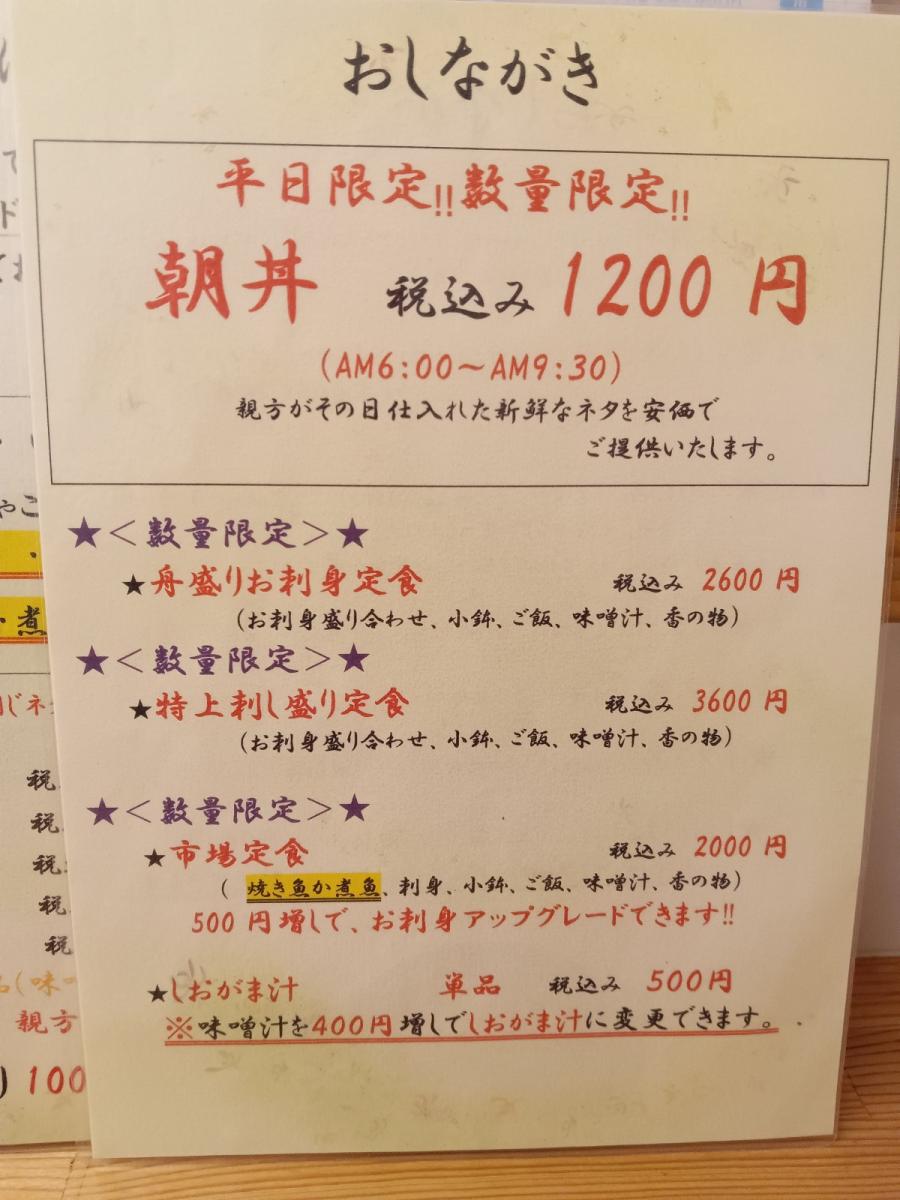 おしながき
平日限定!!数量限定!!
朝丼 税込み 1200 円
(AM6:00～AM9:30)
親方がその日仕入れた新鮮なネタを安価で
ご提供いたします。
★＜数量限定＞★
★舟盛りお刺身定食 税込み 2600 円
(お刺身盛り合わせ、小鉢、ご飯、味噌汁、香の物)
★＜数量限定＞★
★特上刺し盛り定食 税込み 3600 円
(お刺身盛り合わせ、小鉢、ご飯、味噌汁、香の物)
★＜数量限定＞★
★市場定食 税込み 2000 円
( 焼き魚か煮魚、刺身、小鉢、ご飯、味噌汁、香の物)
500 円増しで、お刺身アップグレードできます!!
★しおがま汁 単品 税込み 500円
※味噌汁を400円増しでしおがま汁に変更できます。
ド
煮
税
税
税
税
税
親方
100